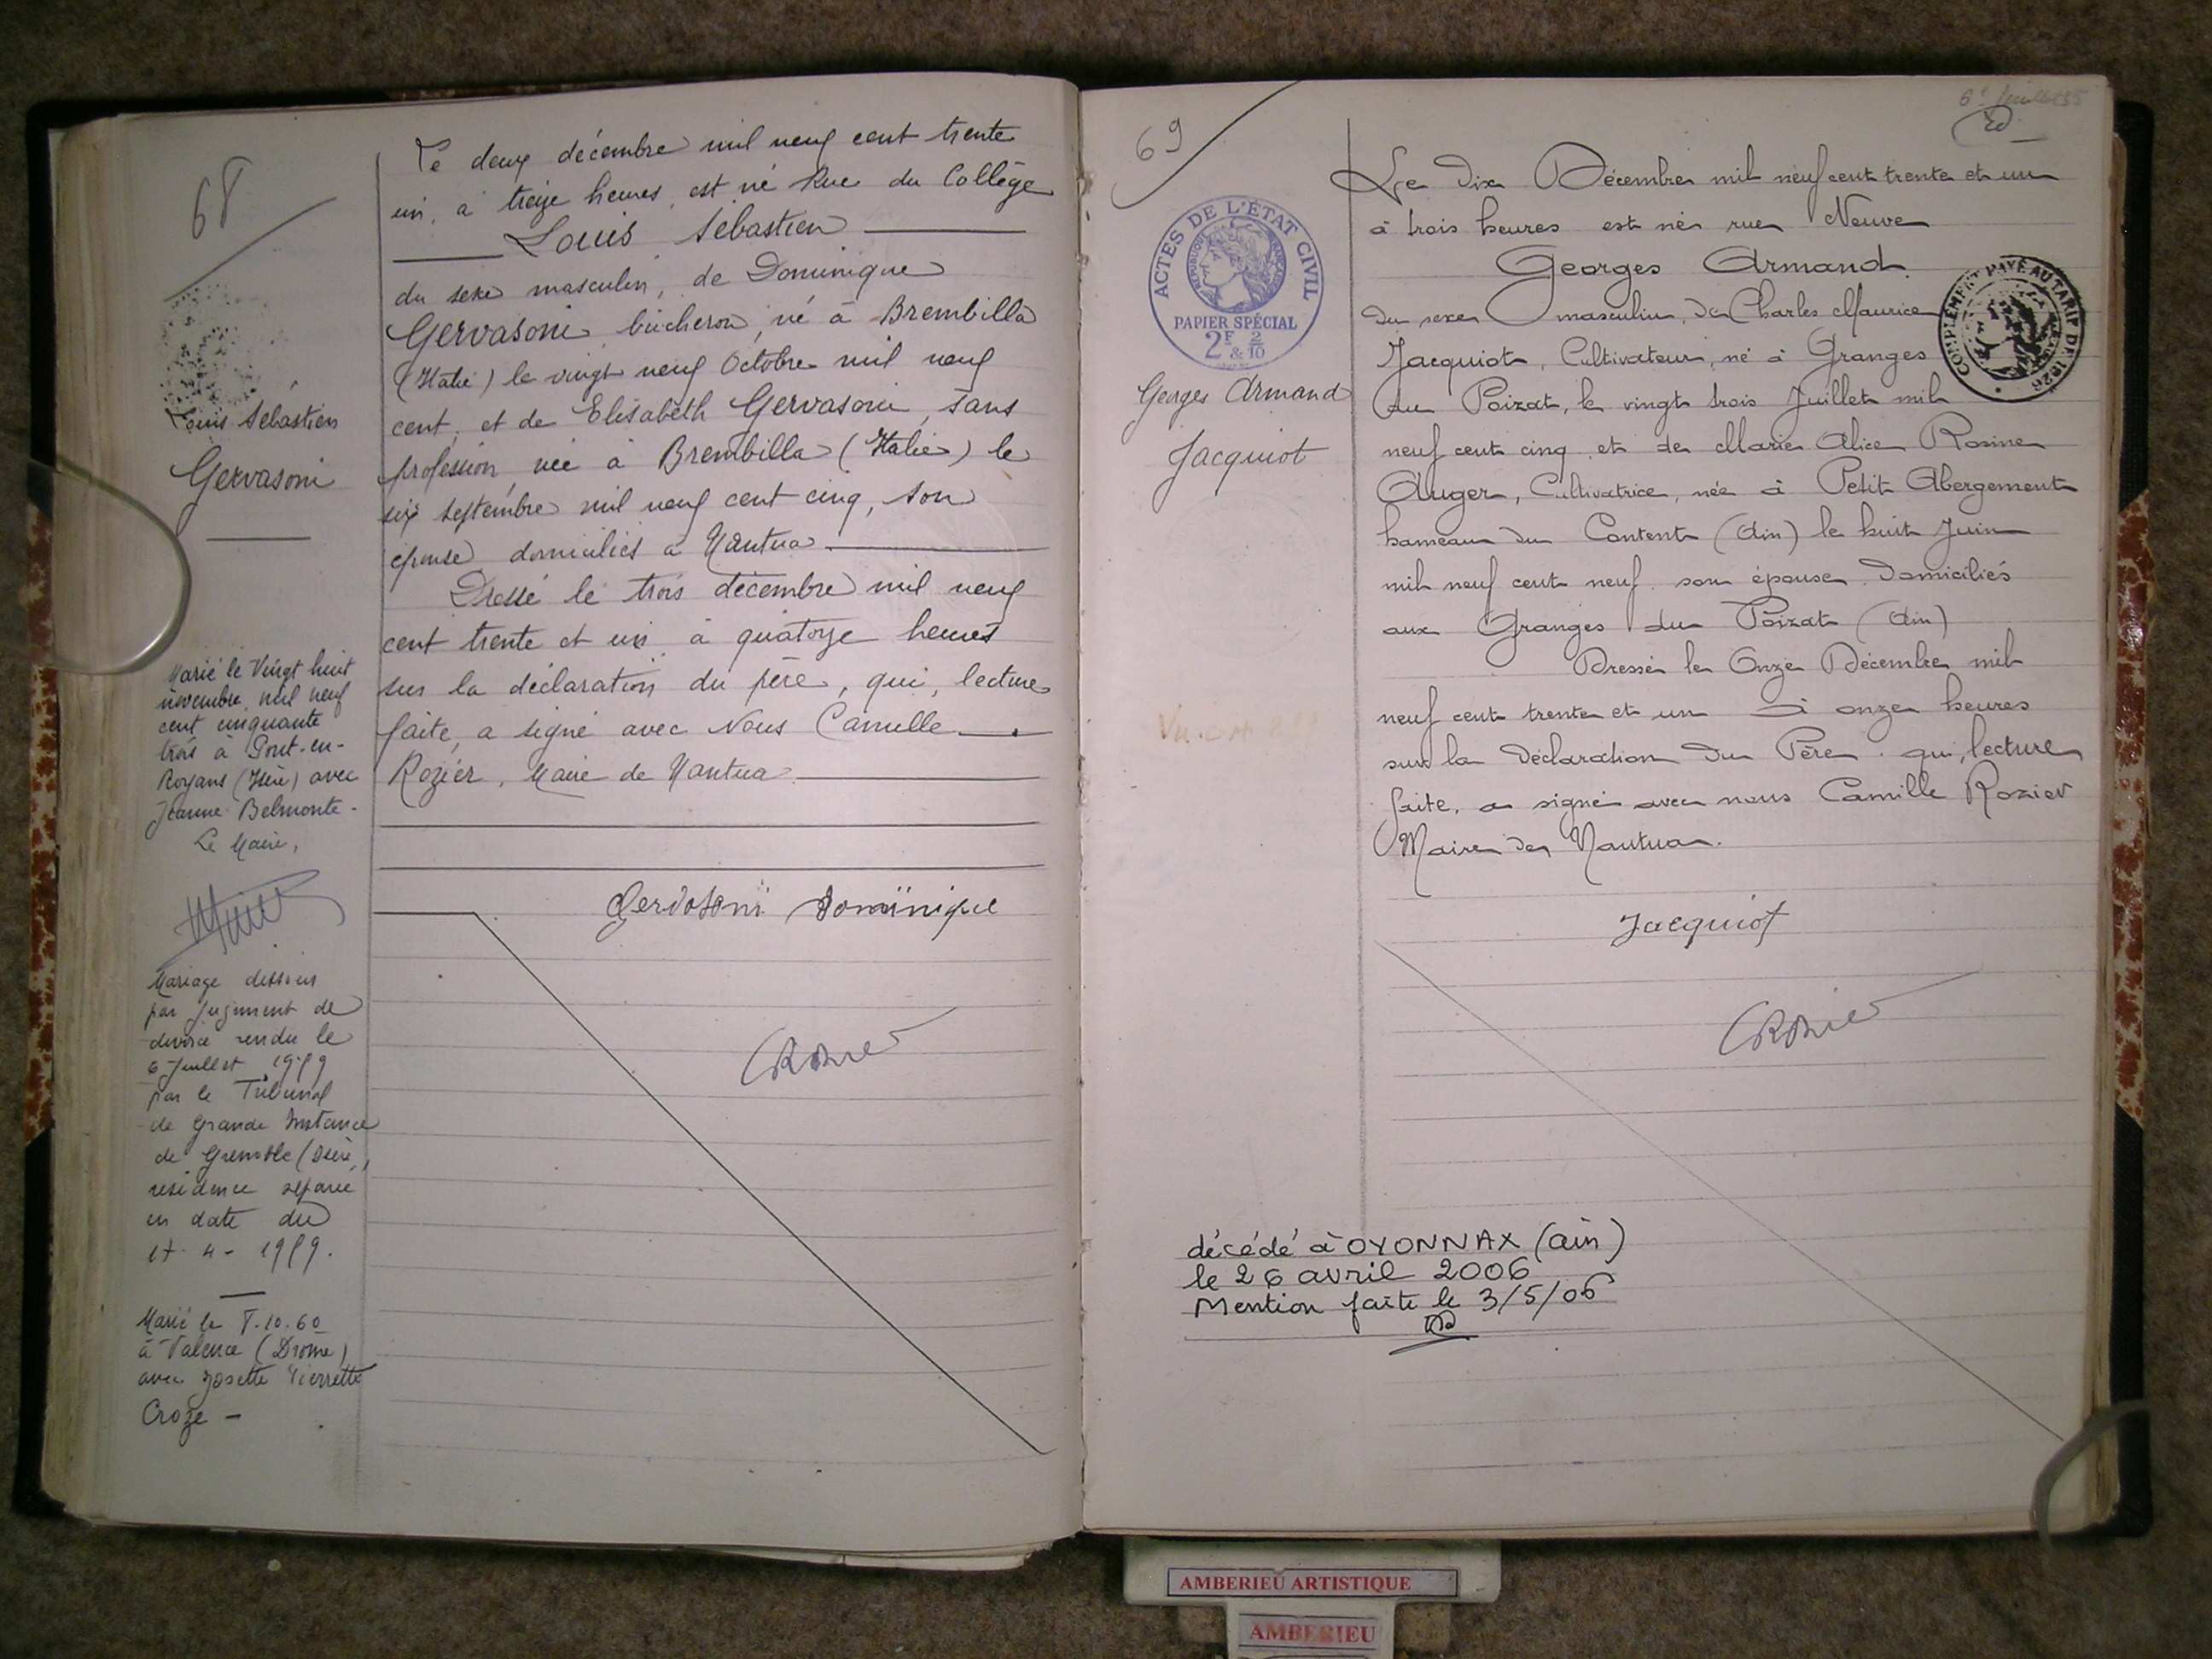 68
Le deux décembre mil neuf cent trente
un, à treize heures, est né Rue du Collège
Louis Sébastien
du sexe masculin, de Dominique
Gervasoni, bûcheron, né à Brembilla
(Italie) le vingt neuf Octobre mil neuf
cent, et de Elisabeth Gervasoni, sans
profession, née à Brembilla (Italie) le
six septembre mil neuf cent cinq, son
épouse, domiciliés à Nantua.
Dressé le trois décembre mil neuf
cent trente et un à quatorze heures
sur la déclaration du père, qui, lecture
faite, a signé avec Nous Camille
Rozier, Maire de Nantua.
Gervasoni Dominique
Louis Sébastien
Gervasoni
Marié le Vingt huit
novembre, mil neuf
cent cinquante
trois à Pont-en-
Royans (Isère) avec
Jeanne Belmonte-
Le Maire,
Mariage dissous
par jugement de
divorce rendu le
6 Juillet 1959
par le Tribunal
de Grande Instance
de Grenoble (Isère),
résidence séparée
en date du
17-4-1959.
Marié le 8.10.60
à Valence (Drôme)
avec Josette Pierrette
Croze -
69
ACTES DE L'ÉTAT CIVIL
RÉPUBLIQUE FRANÇAISE
PAPIER SPÉCIAL
2F & 2/10
Georges Armand
Jacquiot
Le dix Décembre mil neuf cent trente et un
à trois heures est né rue Neuve
Georges Armand.
du sexe masculin, de Charles Maurice
Jacquiot, Cultivateur, né à Granges
du Poizat, le vingt trois Juillet mil
neuf cent cinq et de Marie Alice Rosine
Auger, Cultivatrice, née à Petit Abergement
hameau du Content (Ain) le huit Juin
mil neuf cent neuf son épouse domiciliés
aux Granges du Poizat (Ain)
Dressé le Onze Décembre mil
neuf cent trente et un à onze heures
sur la déclaration du Père qui, lecture
faite, a signé avec nous Camille Rozier
Maire de Nantua.
COMPLÉMENT PAYÉ AU TARIF DE 1926
Jacquiot
décédé à OYONNAX (ain)
le 26 avril 2006
Mention faite le 3/5/06
AMBERIEU ARTISTIQUE
AMBERIEU